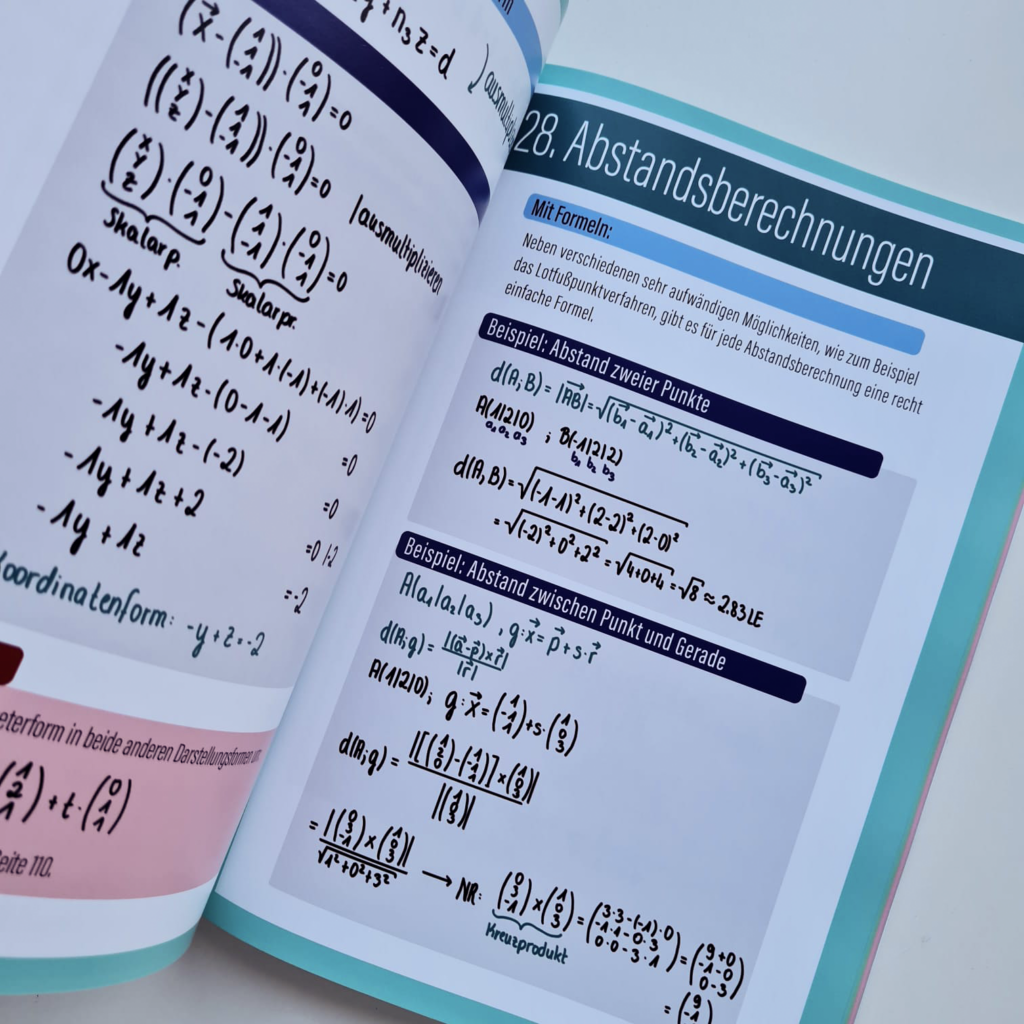 y + n₃z = d
(x⃗ - (1 1 -1)) · (0 -1 1) = 0
((x y z) - (1 1 -1)) · (0 -1 1) = 0 | ausmultiplizieren
(x y z) · (0 -1 1) - (1 1 -1) · (0 -1 1) = 0
Skalarp. Skalarpr.
0x - 1y + 1z - (1·0 + 1·(-1) + (-1)·1) = 0
-1y + 1z - (0 - 1 - 1) = 0
-1y + 1z - (-2) = 0
-1y + 1z + 2 = 0 |-2
-1y + 1z = -2
Koordinatenform: -y + z = -2
in beide anderen Darstellungsformen
+ t · (0 1 1)
Seite 110.
28. Abstandsberechnungen
Mit Formeln:
Neben verschiedenen sehr aufwändigen Möglichkeiten, wie zum Beispiel
das Lotfußpunktverfahren, gibt es für jede Abstandsberechnung eine recht
einfache Formel.
Beispiel: Abstand zweier Punkte
d(A;B) = |AB⃗| = √((b₁⃗ - a₁⃗)² + (b₂⃗ - a₂⃗)² + (b₃⃗ - a₃⃗)²)
A(1|2|0) ; B(-1|2|2)
a₁ a₂ a₃ b₁ b₂ b₃
d(A;B) = √((-1-1)² + (2-2)² + (2-0)²)
= √((-2)² + 0² + 2²) = √(4+0+4) = √8 ≈ 2,83 LE
Beispiel: Abstand zwischen Punkt und Gerade
A(a₁|a₂|a₃) , g: x⃗ = p⃗ + s · r⃗
d(A;g) = |(a⃗ - p⃗) × r⃗| / |r⃗|
A(1|2|0); g: x⃗ = (1 -1 1) + s · (1 0 3)
d(A;g) = |[(1 2 0) - (1 -1 1)] × (1 0 3)| / |(1 0 3)|
= |(0 3 -1) × (1 0 3)| / √(1² + 0² + 3²) → NR: (0 3 -1) × (1 0 3) = (3·3 - (-1)·0 -1·1 - 0·3 0·0 - 3·1) = (9+0 -1-0 0-3)
Kreuzprodukt
= (9 -1